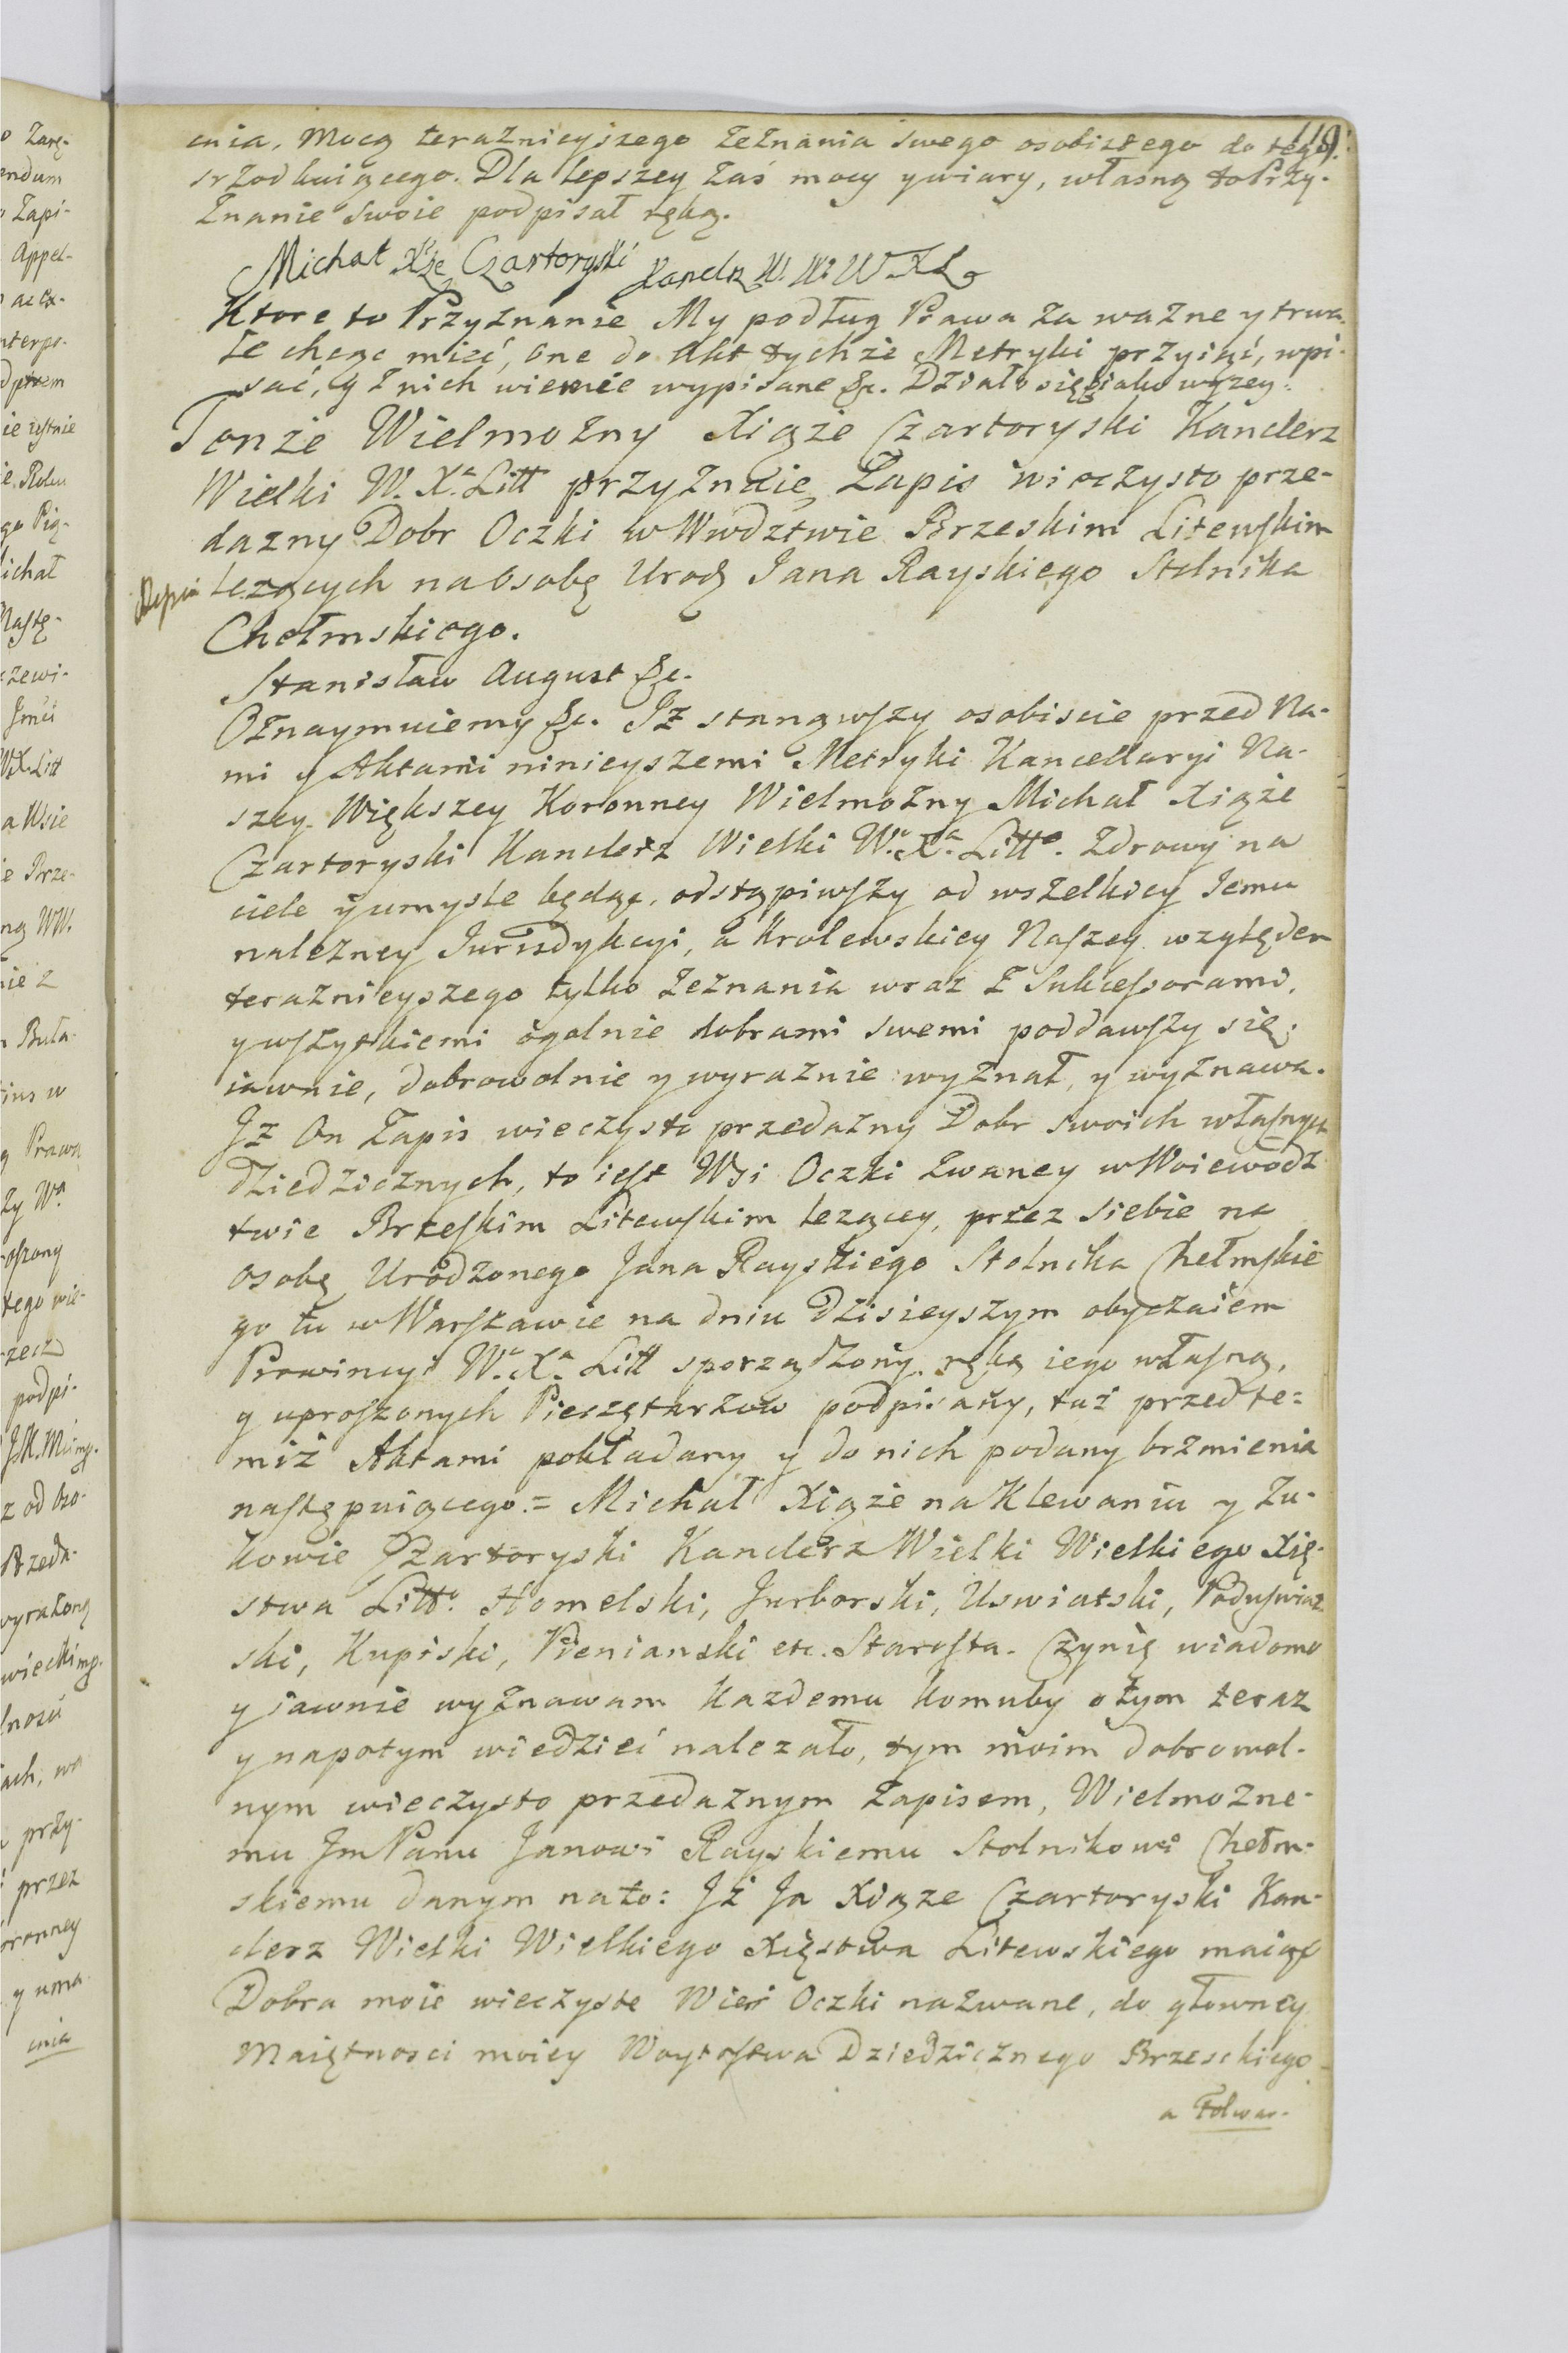 119.
enia, Mocą teraznieyszego zeznania swego osobistego do tego
srzodkuiącego. Dla lepszey zaś mocy y wiary, własną to Przy-
znanie swoie podpisał ręką.
Michał Xże Czartoryski Kanclz W. W. X L.
Ktore to Przyznanie My podług Prawa za ważne y trwa-
łe chcąc mieć, one do Akt tychże Metryki przyiąć, wpi-
sać, y z nich wiernie wypisane &c. Działo się iako wyzey.
Tenże Wielmozny Xiąże Czartoryski Kanclerz
Wielki W. Xa. Litt przyznaie Zapis wieczysto prze-
dazny Dobr Oczki w Wwdztwie Brzeskim Litewskim
lezących na Osobę Urodz Jana Rayskiego Stolnika
Chełmskiego.
Stanisław August &c.
Oznaymuiemy &c. Iż stanąwszy osobiscie przed Na-
mi y Aktami ninieyszemi Metryki Kancellaryi Na-
szey Większey Koronney Wielmożny Michał Xiąże
Czartoryski Kanclerz Wielki Wo. Xa. Litto. Zdrowy na
ciele y umysle będąc, odstąpiwszy od wszelkiey Jemu
nalezney Jurisdykcyi, a Krolewskiey Naszey wzylędem
teraznieyszego tylko zeznania wraz z Sukcessorami,
y wszystkiemi ogolnie dobrami swemi poddawszy się;
iawnie, dobrowolnie y wyraznie wyznał, y wyznawa.
Iż On Zapis wieczysto przedazny Dobr swoich własnych
dziedzicznych, to iest Wsi Oczki zwaney w Woiewodz
twie Brzeskim Litewskim lezącey, przez siebie na
osobę Urodzonego Jana Rayskiego Stolnika Chełmskie
go tu w Warszawie na dniu dzisieyszym obyczaiem
Prowincyi Wo. Xa. Litt sporządzony, ręką iego własną,
y uproszonych Pieczętarzow podpisany, tuż przed te=
miż Aktami pokładany y do nich podany brzmienia
następuiącego. = Michał Xiąże na Klewaniu y Zu-
kowie Czartoryski Kanclerz Wielki Wielkiego Xię-
stwa Litto. Homelski, Jurborski, Uswiatski, Poduswiat-
ski, Kupiski, Pieniański etc. Starosta. Czynię wiadomo
y iawnie wyznawam Kazdemu komuby o tym teraz
y napotym wiedzieć nalezało, tym moim dobrowol-
nym wieczysto przedaznym Zapisem, Wielmozne-
mu Jm Panu Janowi Rayskiemu Stolnikowi Chełm-
skiemu danym na to: Iż Ja Xiąze Czartoryski Kan-
clerz Wielki Wielkiego Xięstwa Litewskiego maiąc
Dobra moie wieczyste Wies Oczki nazwane, do głowney
Maiętnosci moiey Woytostwa Dziedzicznego Brzeskiego
a Folwar-